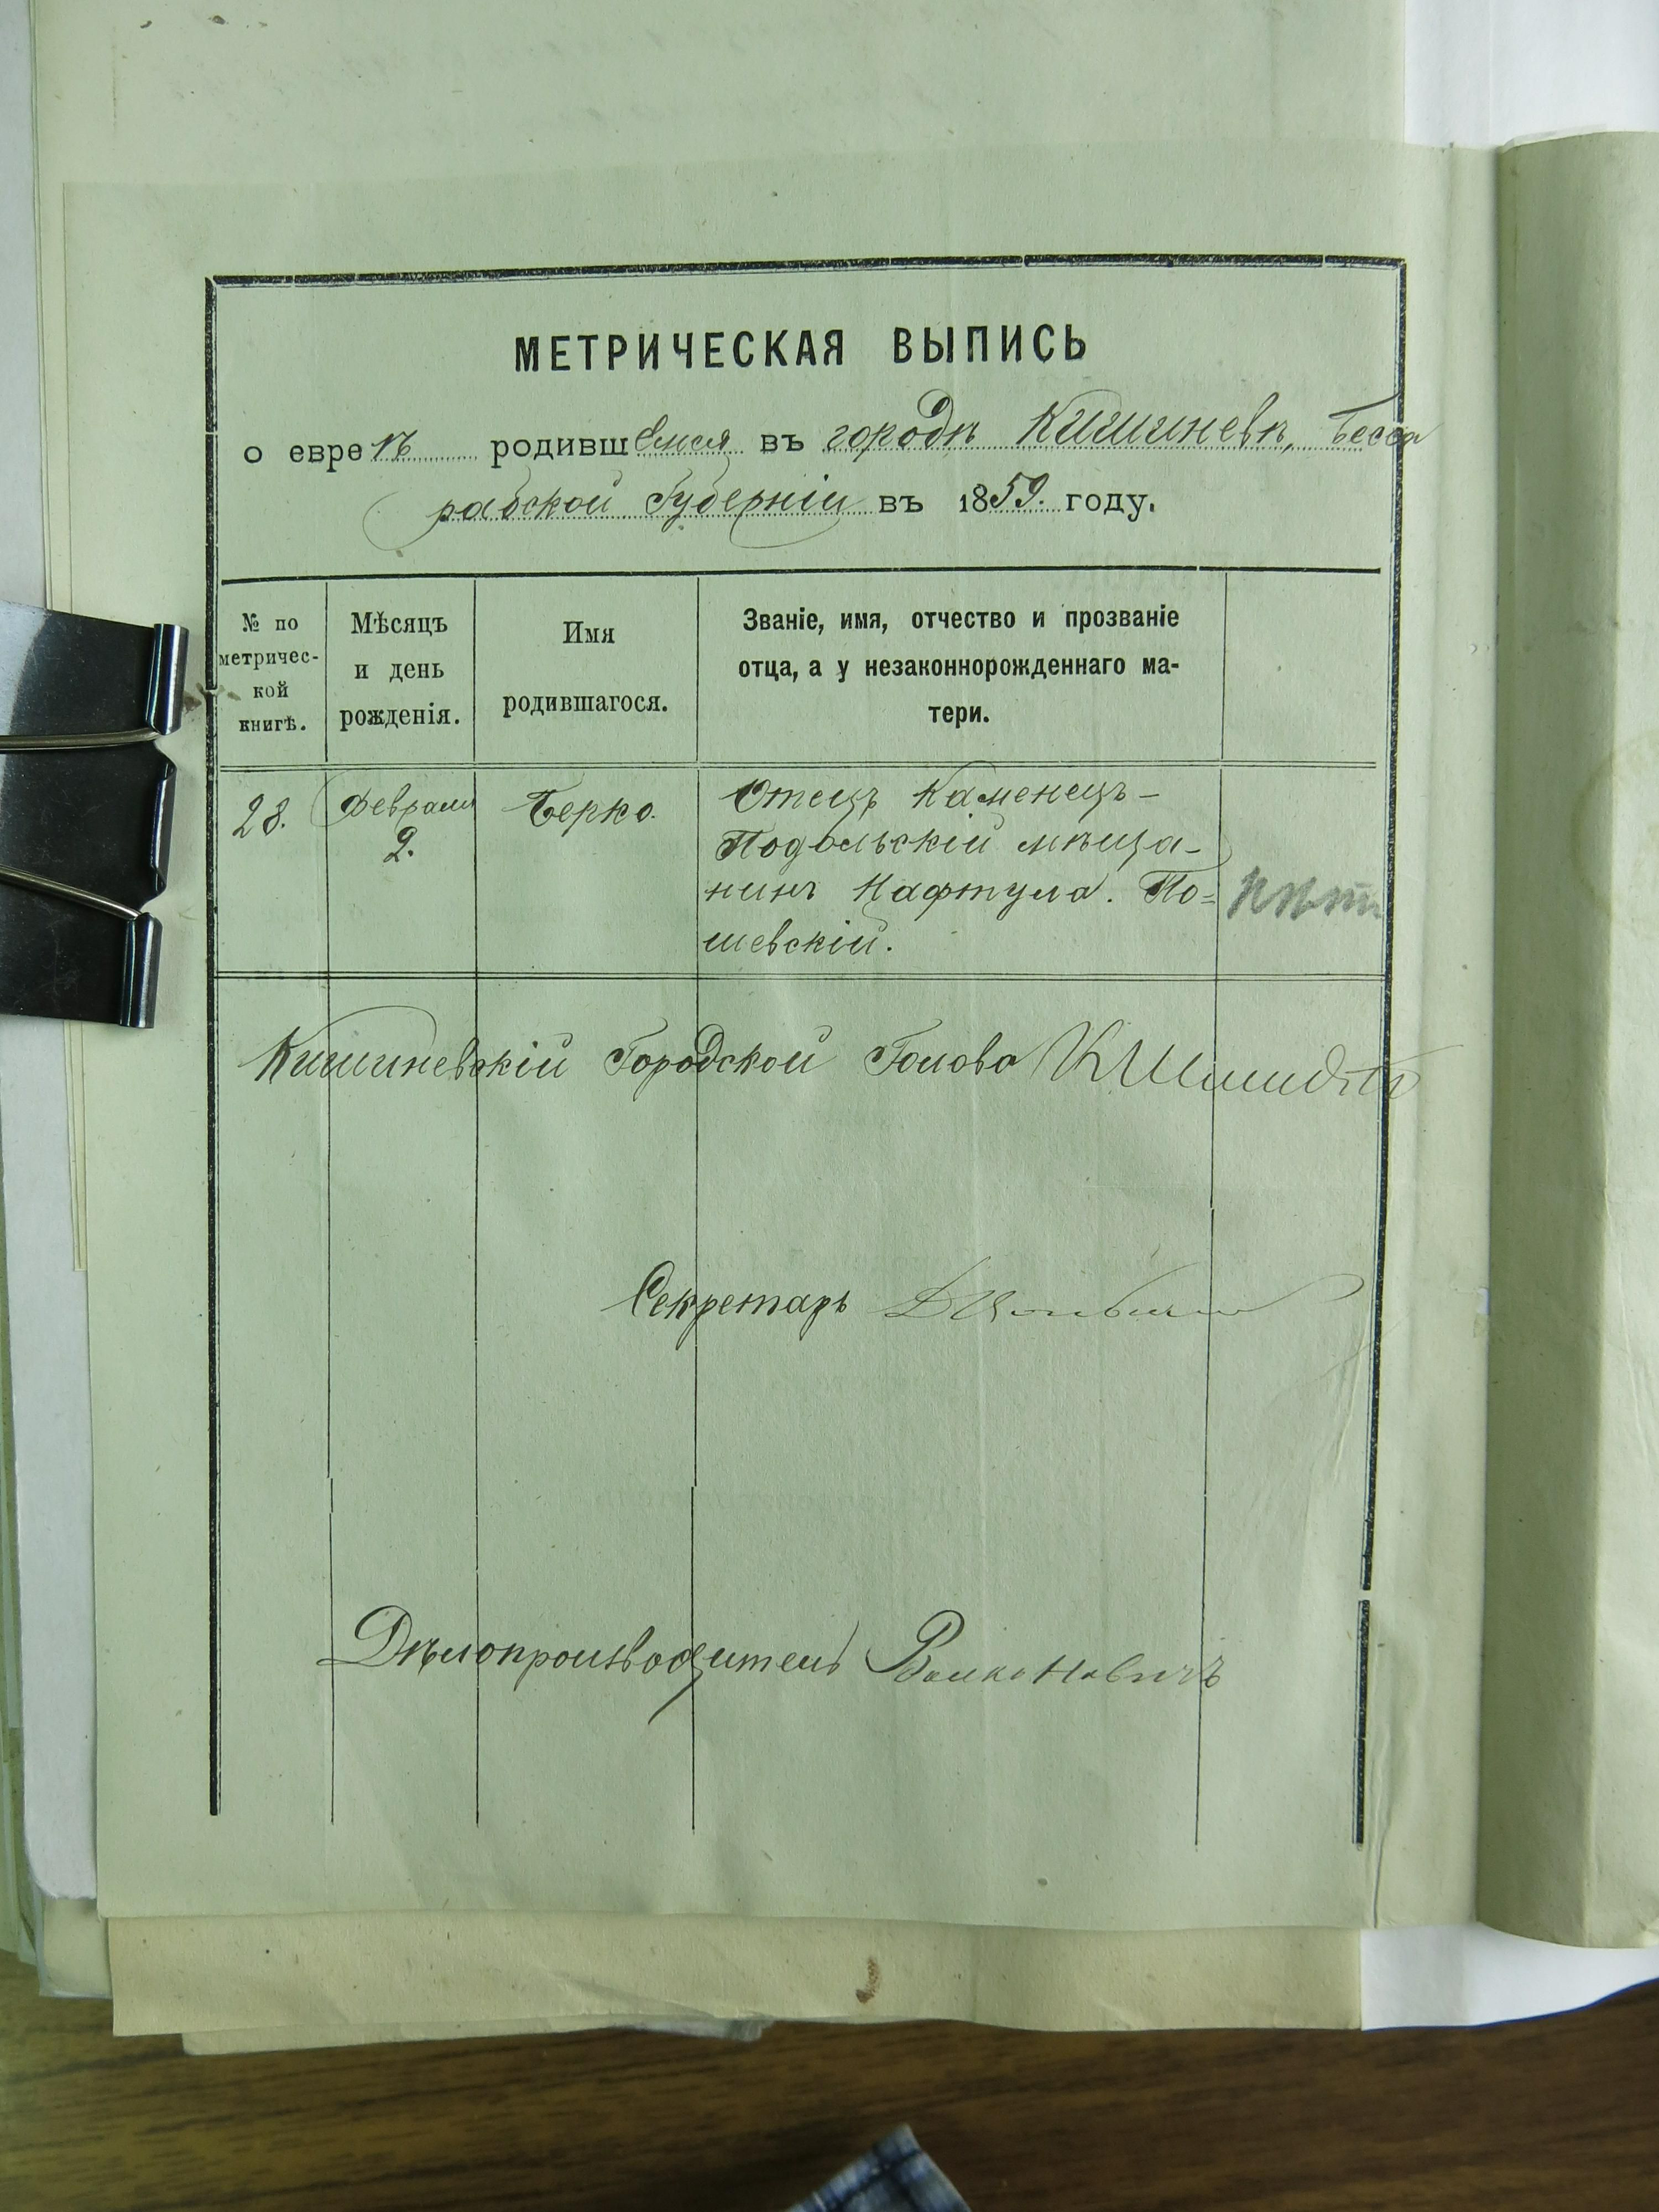 МЕТРИЧЕСКАЯ ВЫПИСЬ
о евреѣ родившемся въ городѣ Кишиневѣ, Бесса
рабской Губерніи въ 1859. году.
№ по метричес- кой книгѣ.
Мѣсяцъ и день рожденія.
Имя родившагося.
Званіе, имя, отчество и прозваніе
отца, а у незаконнорожденнаго ма-
тери.
28.
Февраля
2.
Берко.
Отецъ Каменецъ-
Подольскій мѣща-
нинъ Нафтула. По=
шевскій.
нѣтъ
Кишиневскій Городской Голова КШмидтъ
Секретарь
Дѣлопроизводитель